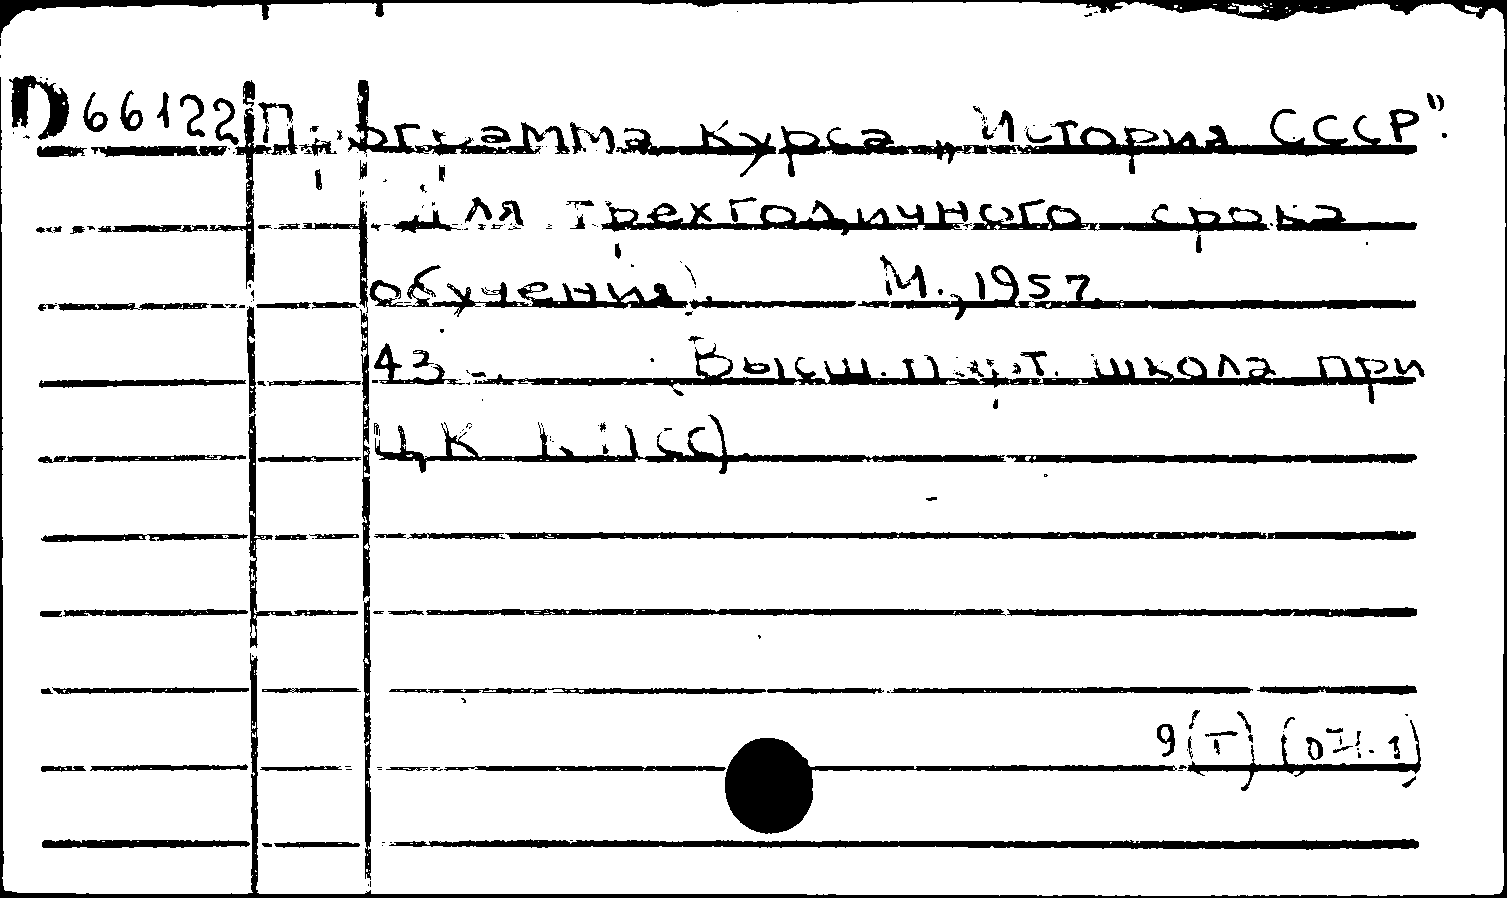 D66122 Программа курса „История СССР".
Для трехгодичного срока
обучения). М., 1957.
43 Высш. парт. школа при
ЦК КПСС).
9(Т)